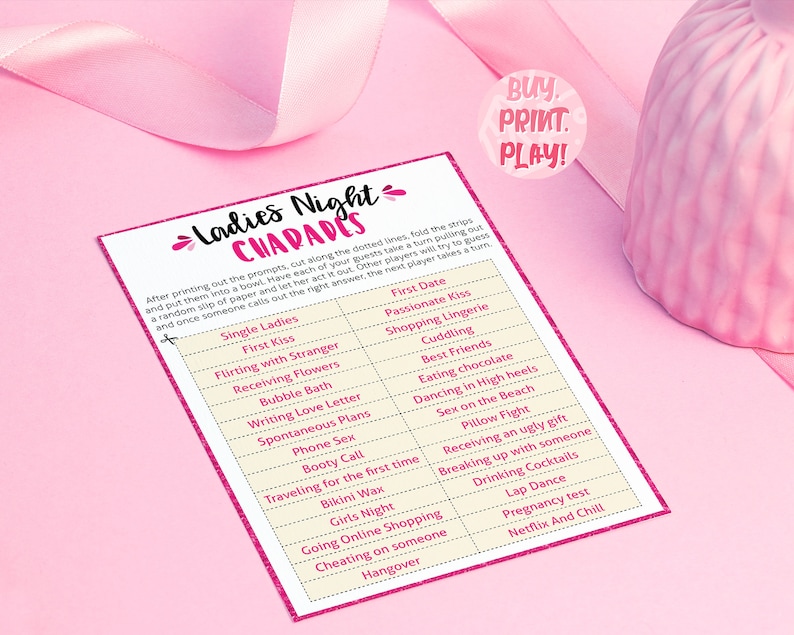 BUY.
PRINT.
PLAY!
Ladies Night
CHARADES
After printing out the prompts, cut along the dotted lines, fold the strips
and put them into a bowl. Have each of your guests take a turn pulling out
a random slip of paper and let her act it out. Other players will try to guess
and once someone calls out the right answer, the next player takes a turn.
Single Ladies
First Kiss
Flirting with Stranger
Receiving Flowers
Bubble Bath
Writing Love Letter
Spontaneous Plans
Phone Sex
Booty Call
Traveling for the first time
Bikini Wax
Girls Night
Going Online Shopping
Cheating on someone
Hangover
First Date
Passionate Kiss
Shopping Lingerie
Cuddling
Best Friends
Eating chocolate
Dancing in High heels
Sex on the Beach
Pillow Fight
Receiving an ugly gift
Breaking up with someone
Drinking Cocktails
Lap Dance
Pregnancy test
Netflix And Chill